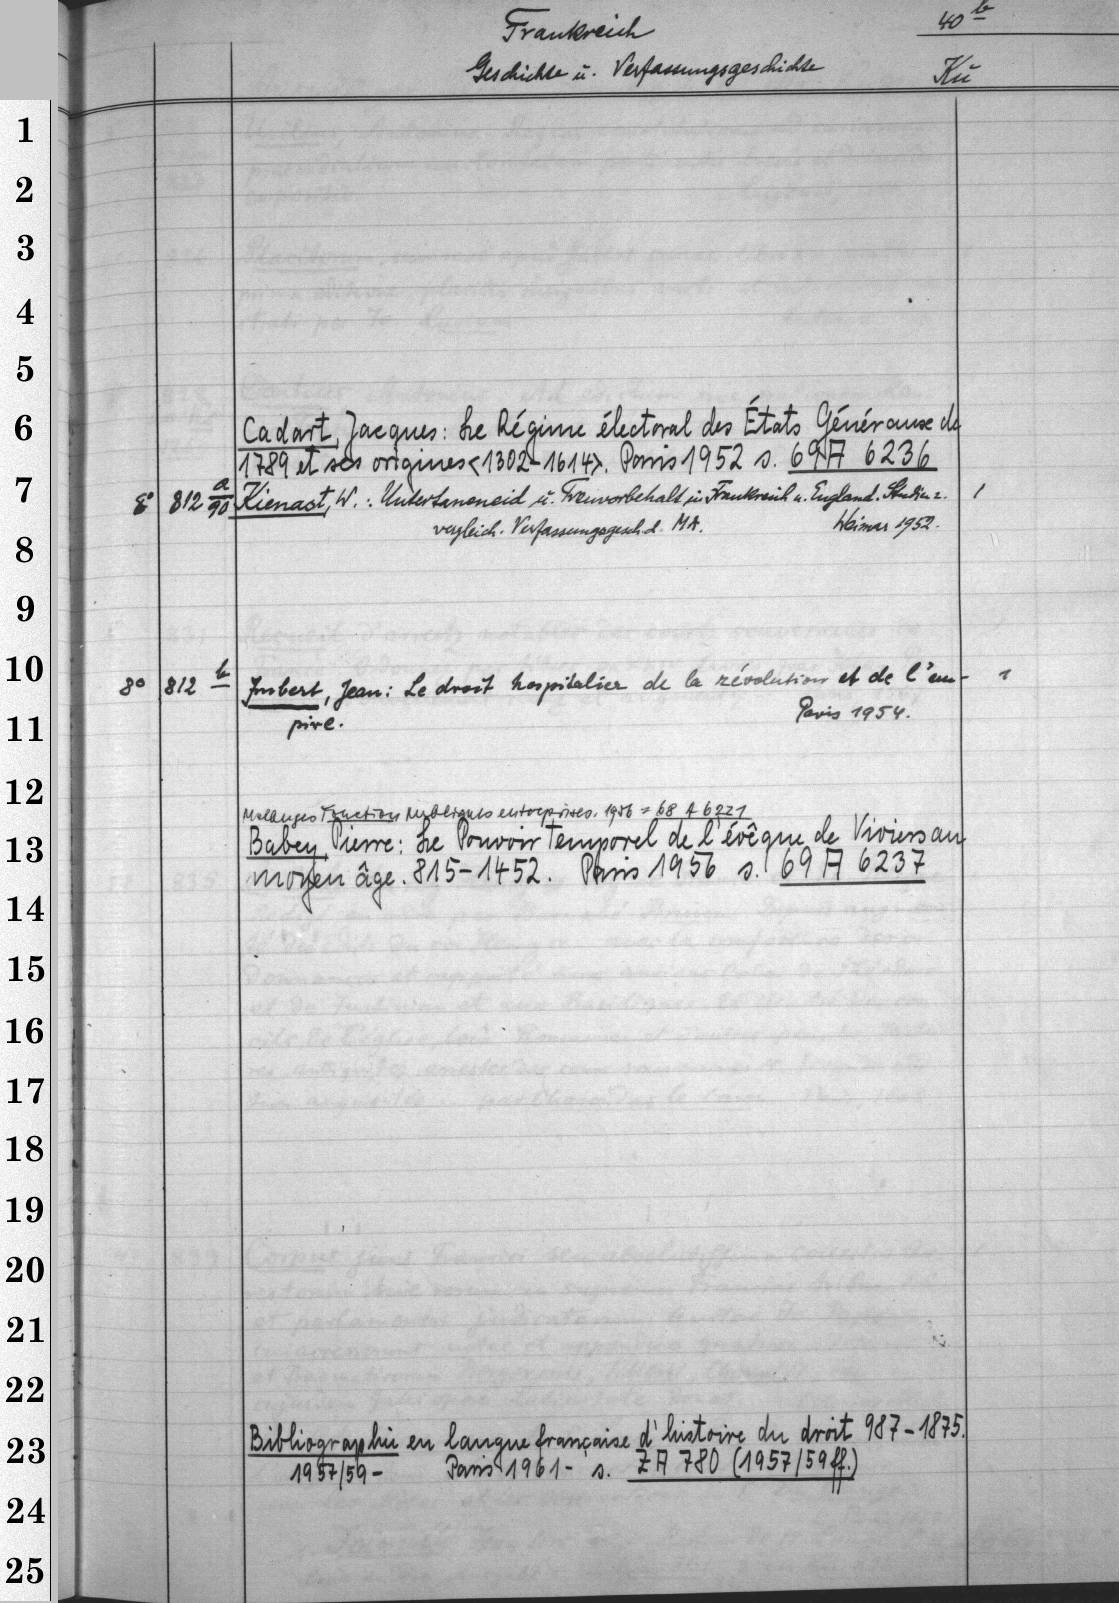 Frankreich
40 b
Geschichte u. Verfassungsgeschichte
Kü
1
2
3
4
5
6
Cadart, Jacques: Le Régime électoral des États Généraux de
1789 et ses origines <1302-1614>. Paris 1952 s. 69 A 6236
7
8° 812 a/90 Kienast, W.: Untertaneneid u. Treuvorbehalt in Frankreich u. England. Studien z. 1
vergleich. Verfassungsgesch. d. MA. Weimar 1952.
8
9
10
8° 812 b Imbert, Jean: Le droit hospitalier de la révolution et de l'em- 1
pire. Paris 1954.
11
12
Mélanges entreprises. 1956 = 68 A 6221
13
Babey, Pierre: Le Pouvoir temporel de l'évêque de Viviers au
moyen âge. 815-1452. Paris 1956 s. 69 A 6237
14
15
16
17
18
19
20
21
22
23
Bibliographie en langue française d'histoire du droit 987-1875.
1957/59- Paris 1961- s. ZA 780 (1957/59ff.)
24
25